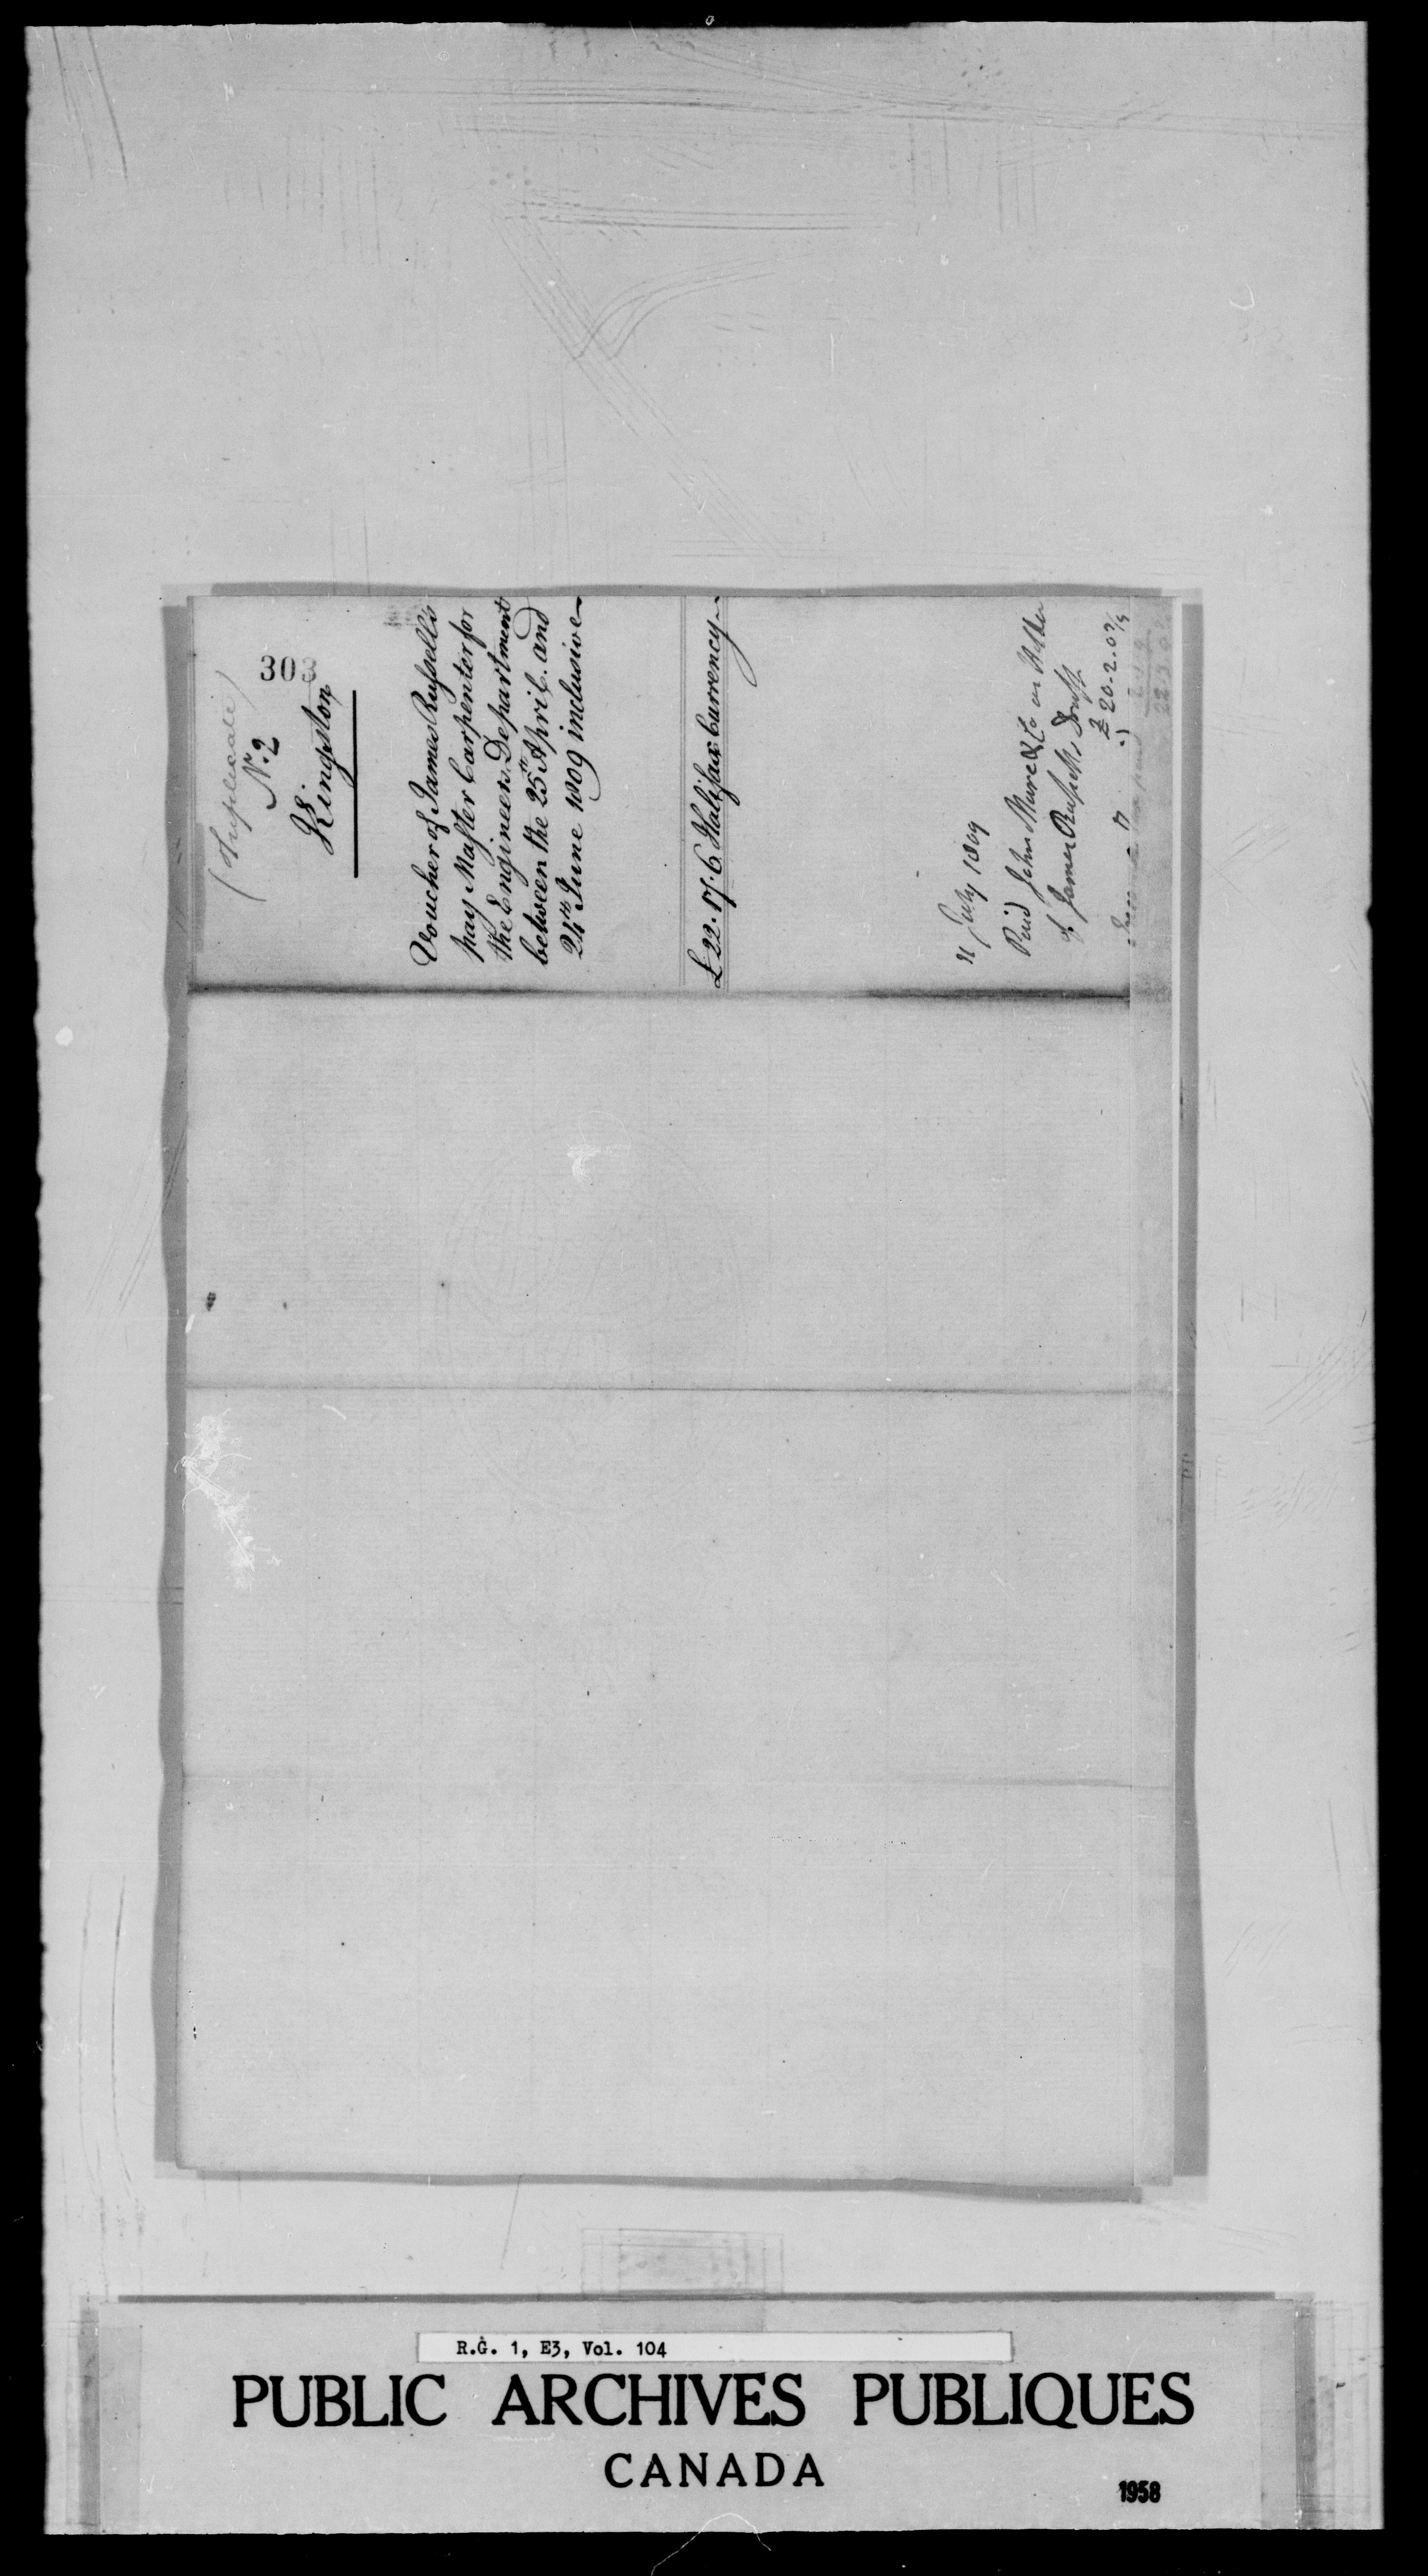 303
(Triplicate)
Nr. 2
Kingston
Voucher of James Russell's
pay Master Carpenter for
the Engineers Department
between the 25th April and
24th June 1809 inclusive
£22.17.6 Halifax Currency
July 1809
Paid John Mure & Co on
of James Russell's Draft
£ 20.2.0¾
R.G. 1, E3, Vol. 104
PUBLIC ARCHIVES PUBLIQUES
CANADA
1958